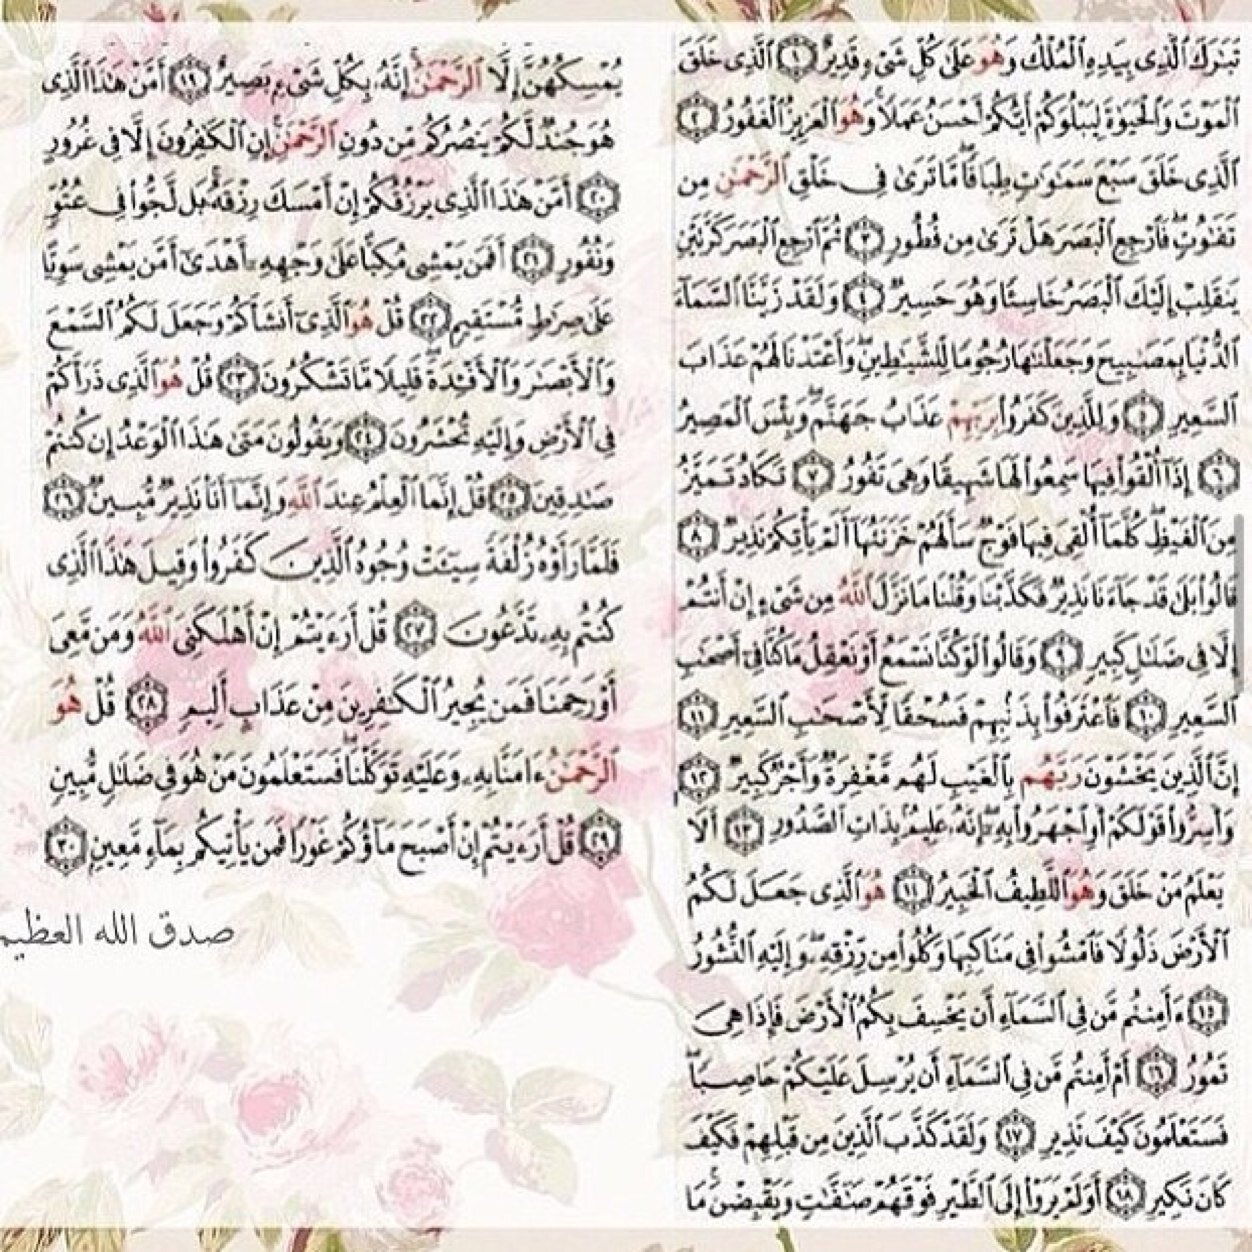 تَبَٰرَكَ ٱلَّذِى بِيَدِهِ ٱلْمُلْكُ وَهُوَ عَلَىٰ كُلِّ شَىْءٍ قَدِيرٌ ١ ٱلَّذِى خَلَقَ
ٱلْمَوْتَ وَٱلْحَيَوٰةَ لِيَبْلُوَكُمْ أَيُّكُمْ أَحْسَنُ عَمَلًا ۚ وَهُوَ ٱلْعَزِيزُ ٱلْغَفُورُ ٢
ٱلَّذِى خَلَقَ سَبْعَ سَمَٰوَٰتٍ طِبَاقًا ۖ مَّا تَرَىٰ فِى خَلْقِ ٱلرَّحْمَٰنِ مِن
تَفَٰوُتٍ ۖ فَٱرْجِعِ ٱلْبَصَرَ هَلْ تَرَىٰ مِن فُطُورٍ ٣ ثُمَّ ٱرْجِعِ ٱلْبَصَرَ كَرَّتَيْنِ
يَنقَلِبْ إِلَيْكَ ٱلْبَصَرُ خَاسِئًا وَهُوَ حَسِيرٌ ٤ وَلَقَدْ زَيَّنَّا ٱلسَّمَآءَ
ٱلدُّنْيَا بِمَصَٰبِيحَ وَجَعَلْنَٰهَا رُجُومًا لِّلشَّيَٰطِينِ ۖ وَأَعْتَدْنَا لَهُمْ عَذَابَ
ٱلسَّعِيرِ ٥ وَلِلَّذِينَ كَفَرُوا۟ بِرَبِّهِمْ عَذَابُ جَهَنَّمَ ۖ وَبِئْسَ ٱلْمَصِيرُ
٦ إِذَآ أُلْقُوا۟ فِيهَا سَمِعُوا۟ لَهَا شَهِيقًا وَهِىَ تَفُورُ ٧ تَكَادُ تَمَيَّزُ
مِنَ ٱلْغَيْظِ ۖ كُلَّمَآ أُلْقِىَ فِيهَا فَوْجٌ سَأَلَهُمْ خَزَنَتُهَآ أَلَمْ يَأْتِكُمْ نَذِيرٌ ٨
قَالُوا۟ بَلَىٰ قَدْ جَآءَنَا نَذِيرٌ فَكَذَّبْنَا وَقُلْنَا مَا نَزَّلَ ٱللَّهُ مِن شَىْءٍ إِنْ أَنتُمْ
إِلَّا فِى ضَلَٰلٍ كَبِيرٍ ٩ وَقَالُوا۟ لَوْ كُنَّا نَسْمَعُ أَوْ نَعْقِلُ مَا كُنَّا فِىٓ أَصْحَٰبِ
ٱلسَّعِيرِ ١٠ فَٱعْتَرَفُوا۟ بِذَنۢبِهِمْ فَسُحْقًا لِّأَصْحَٰبِ ٱلسَّعِيرِ ١١
إِنَّ ٱلَّذِينَ يَخْشَوْنَ رَبَّهُم بِٱلْغَيْبِ لَهُم مَّغْفِرَةٌ وَأَجْرٌ كَبِيرٌ ١٢
وَأَسِرُّوا۟ قَوْلَكُمْ أَوِ ٱجْهَرُوا۟ بِهِۦٓ ۖ إِنَّهُۥ عَلِيمٌۢ بِذَاتِ ٱلصُّدُورِ ١٣ أَلَا
يَعْلَمُ مَنْ خَلَقَ وَهُوَ ٱللَّطِيفُ ٱلْخَبِيرُ ١٤ هُوَ ٱلَّذِى جَعَلَ لَكُمُ
ٱلْأَرْضَ ذَلُولًا فَٱمْشُوا۟ فِى مَنَاكِبِهَا وَكُلُوا۟ مِن رِّزْقِهِۦ ۖ وَإِلَيْهِ ٱلنُّشُورُ
١٥ ءَأَمِنتُم مَّن فِى ٱلسَّمَآءِ أَن يَخْسِفَ بِكُمُ ٱلْأَرْضَ فَإِذَا هِىَ
تَمُورُ ١٦ أَمْ أَمِنتُم مَّن فِى ٱلسَّمَآءِ أَن يُرْسِلَ عَلَيْكُمْ حَاصِبًا ۖ
فَسَتَعْلَمُونَ كَيْفَ نَذِيرِ ١٧ وَلَقَدْ كَذَّبَ ٱلَّذِينَ مِن قَبْلِهِمْ فَكَيْفَ
كَانَ نَكِيرِ ١٨ أَوَلَمْ يَرَوْا۟ إِلَى ٱلطَّيْرِ فَوْقَهُمْ صَٰٓفَّٰتٍ وَيَقْبِضْنَ ۚ مَا
يُمْسِكُهُنَّ إِلَّا ٱلرَّحْمَٰنُ ۚ إِنَّهُۥ بِكُلِّ شَىْءٍۭ بَصِيرٌ ١٩ أَمَّنْ هَٰذَا ٱلَّذِى
هُوَ جُندٌ لَّكُمْ يَنصُرُكُم مِّن دُونِ ٱلرَّحْمَٰنِ ۚ إِنِ ٱلْكَٰفِرُونَ إِلَّا فِى غُرُورٍ
٢٠ أَمَّنْ هَٰذَا ٱلَّذِى يَرْزُقُكُمْ إِنْ أَمْسَكَ رِزْقَهُۥ ۚ بَل لَّجُّوا۟ فِى عُتُوٍّ
وَنُفُورٍ ٢١ أَفَمَن يَمْشِى مُكِبًّا عَلَىٰ وَجْهِهِۦٓ أَهْدَىٰٓ أَمَّن يَمْشِى سَوِيًّا
عَلَىٰ صِرَٰطٍ مُّسْتَقِيمٍ ٢٢ قُلْ هُوَ ٱلَّذِىٓ أَنشَأَكُمْ وَجَعَلَ لَكُمُ ٱلسَّمْعَ
وَٱلْأَبْصَٰرَ وَٱلْأَفْـِٔدَةَ ۖ قَلِيلًا مَّا تَشْكُرُونَ ٢٣ قُلْ هُوَ ٱلَّذِى ذَرَأَكُمْ
فِى ٱلْأَرْضِ وَإِلَيْهِ تُحْشَرُونَ ٢٤ وَيَقُولُونَ مَتَىٰ هَٰذَا ٱلْوَعْدُ إِن كُنتُمْ
صَٰدِقِينَ ٢٥ قُلْ إِنَّمَا ٱلْعِلْمُ عِندَ ٱللَّهِ وَإِنَّمَآ أَنَا۠ نَذِيرٌ مُّبِينٌ ٢٦
فَلَمَّا رَأَوْهُ زُلْفَةً سِيٓـَٔتْ وُجُوهُ ٱلَّذِينَ كَفَرُوا۟ وَقِيلَ هَٰذَا ٱلَّذِى
كُنتُم بِهِۦ تَدَّعُونَ ٢٧ قُلْ أَرَءَيْتُمْ إِنْ أَهْلَكَنِىَ ٱللَّهُ وَمَن مَّعِىَ
أَوْ رَحِمَنَا فَمَن يُجِيرُ ٱلْكَٰفِرِينَ مِنْ عَذَابٍ أَلِيمٍ ٢٨ قُلْ هُوَ
ٱلرَّحْمَٰنُ ءَامَنَّا بِهِۦ وَعَلَيْهِ تَوَكَّلْنَا ۖ فَسَتَعْلَمُونَ مَنْ هُوَ فِى ضَلَٰلٍ مُّبِينٍ
٢٩ قُلْ أَرَءَيْتُمْ إِنْ أَصْبَحَ مَآؤُكُمْ غَوْرًا فَمَن يَأْتِيكُم بِمَآءٍ مَّعِينٍۭ ٣٠
صدق الله العظيم